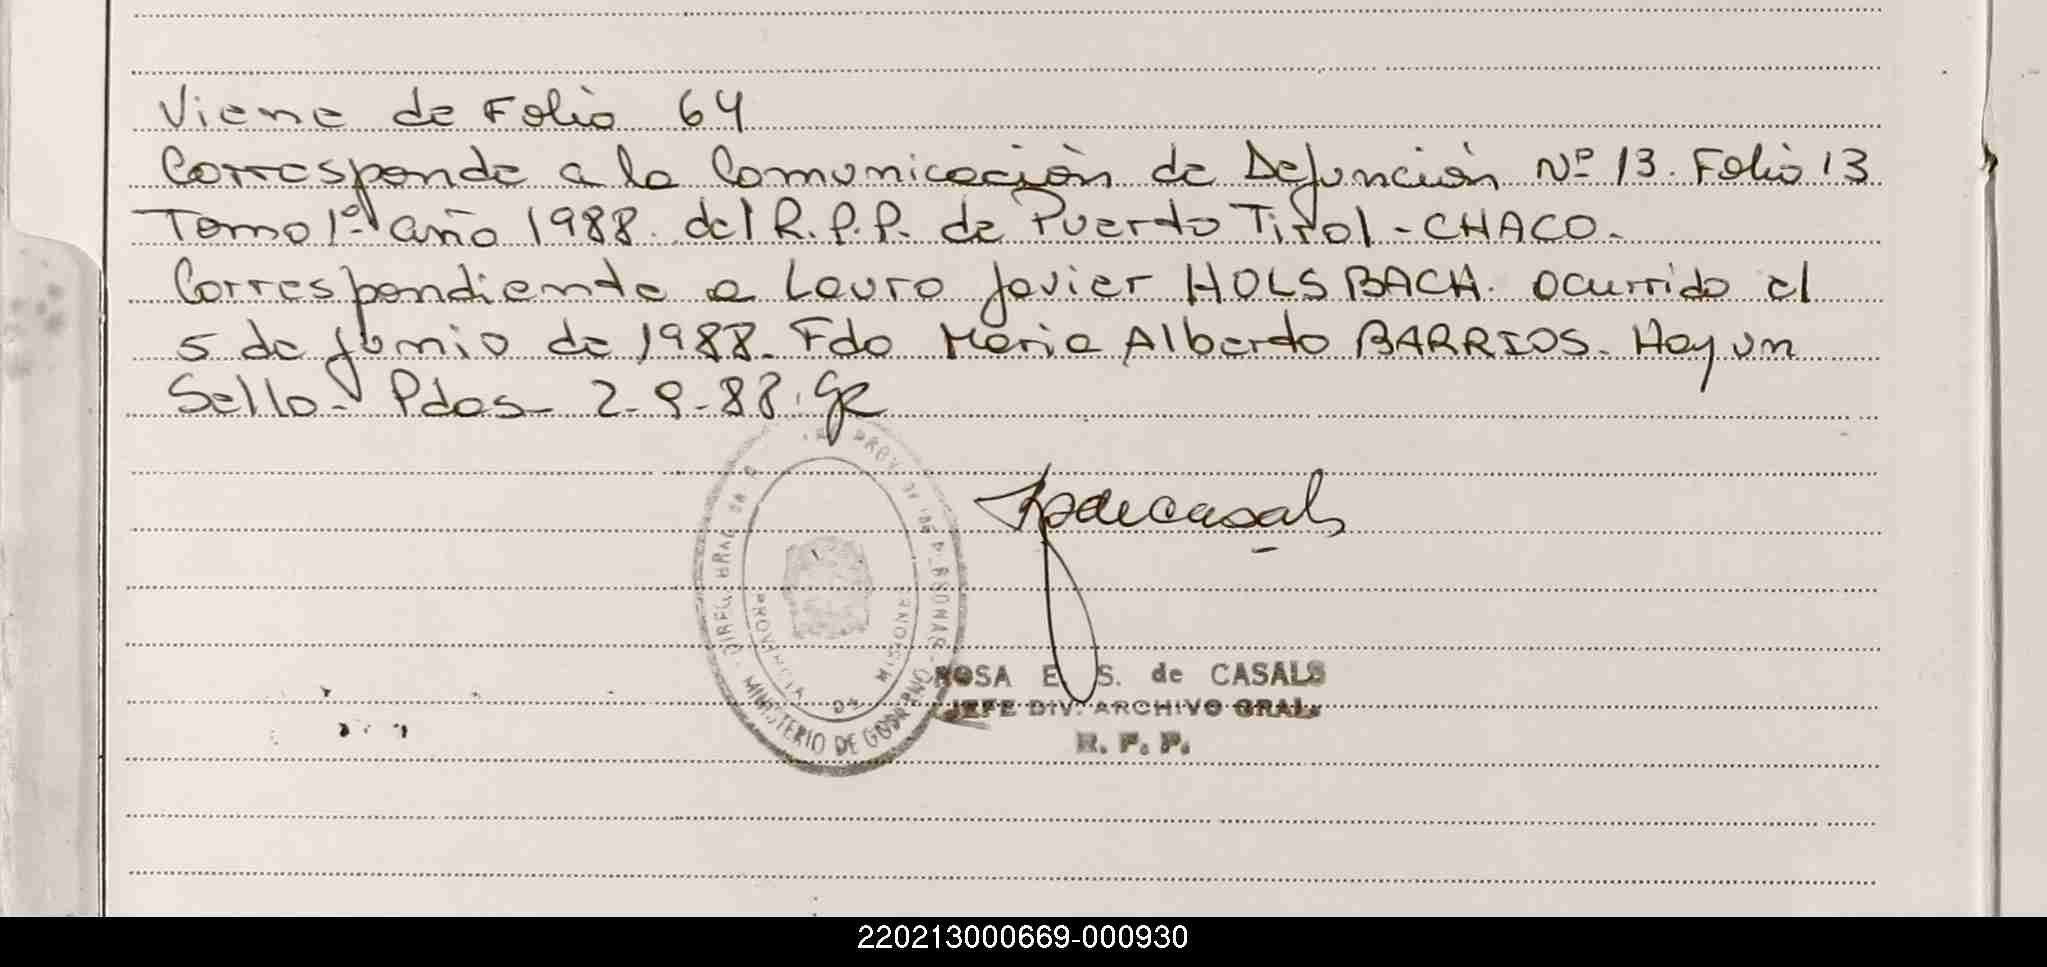 Viene de Folio 64
Corresponde a la Comunicación de Defunción Nº 13. Folio 13
Tomo 1º año 1988. del R.P.P. de Puerto Tirol - CHACO.
Correspondiente a Lauro Javier HOLSBACH. ocurrido el
5 de junio de 1988. Fdo Maria Alberto BARRIOS. Hay un
Sello. Pdas 2-9-88.
PROV. DE
PERSONAS
PROVINCIA DE MISIONES
MINISTERIO DE GOBIERNO
ROSA E. S. de CASALS
JEFE DIV. ARCHIVO GRAL.
R. P. P.
220213000669-000930